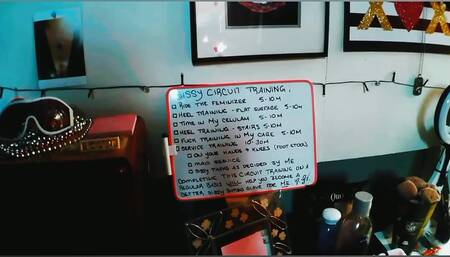 SISSY CIRCUIT TRAINING.
RIDE THE FEMINIZER 5-10M
HEEL TRAINING - FLAT SURFACE 5-10M
TIME IN MY CELLUM 5-10M
HEEL TRAINING - STAIRS 5-10M
FUCK TRAINING IN MY CAGE 5-10M
SERVICE TRAINING 10-30M
ON YOUR HANDS & KNEES (FOOT STOOL)
MAID SERVICE
SISSY TASKS AS DECIDED BY ME
COMPLETING THIS CIRCUIT TRAINING ON A
REGULAR BASIS WILL HELP YOU BECOME A
BETTER SISSY SLAVE FOR ME